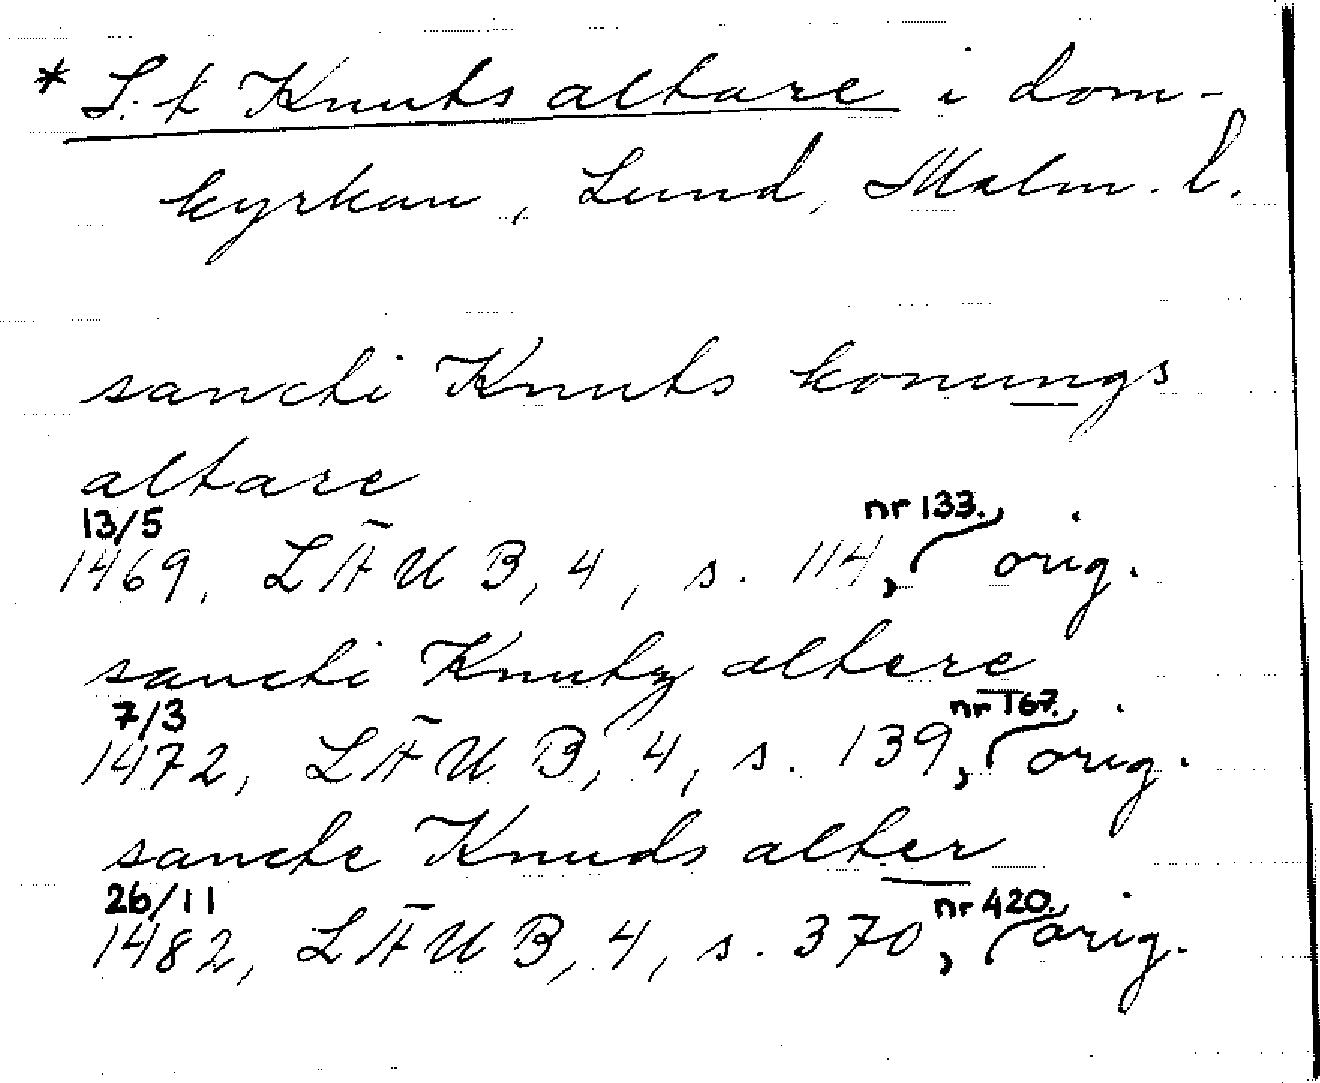 * S:t Knuts altare i dom-
kyrkan, Lund, Malm. l.
sancti Knuts konungs
altare
13/5 nr 133.
1469, LÄUB, 4, s. 114, orig.
sancti Knutz altere
7/3 nr 167.
1472, LÄUB, 4, s. 139, orig.
sancte Knuds alter
26/11 nr 420.
1482, LÄUB, 4, s. 370, orig.